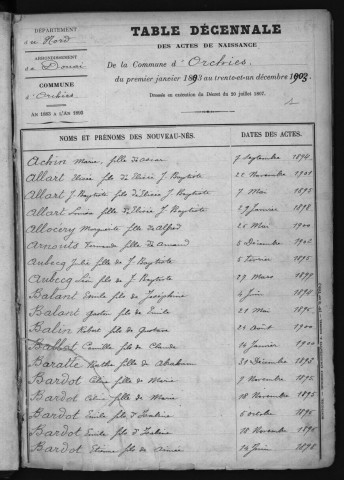 DÉPARTEMENT
du Nord
ARRONDISSEMENT
de Douai
COMMUNE
d'Orchies
An 1893 à l'An 1903
TABLE DÉCENNALE
DES ACTES DE NAISSANCE
De la Commune d'Orchies
du premier janvier 1893 au trente-et-un décembre 1903.
Dressée en exécution du Décret du 20 juillet 1807.
NOMS ET PRÉNOMS DES NOUVEAU-NÉS. DATES DES ACTES.
Achin Marie fille de Oscar 7 Septembre 1894
Allart Elisée fils de Elisée J. Baptiste 22 Novembre 1901
Allart J. Baptiste fils de Elisée J. Baptiste 7 Mai 1893
Allart Louise fille de Elisée J. Baptiste 29 Janvier 1898
Allocery Marguerite fille de Alfred 25 Mai 1900
Arnouts Fernande fille de Armand 8 Décembre 1902
Aubecq Julie fille de J. Baptiste 5 Février 1895
Aubecq Léon fils de J. Baptiste 29 Mars 1899
Balant Emile fils de Joséphine 4 Juin 1894
Balant Gaston fils de Emile 21 Mai 1895
Balin Robert fils de Gustave 21 Août 1900
Ballot Camille fils de Claude 14 Janvier 1900
Baratte Berthe fille de Abraham 31 Décembre 1898
Bardot Céline fille de Marie 7 Novembre 1893
Bardot Céline fille de Marie 18 Novembre 1895
Bardot Emile fils d'Emeline 5 Octobre 1895
Bardot Emile fils d' 18 Novembre
Bardot Etienne fils de Aimée 24 Juin 1898